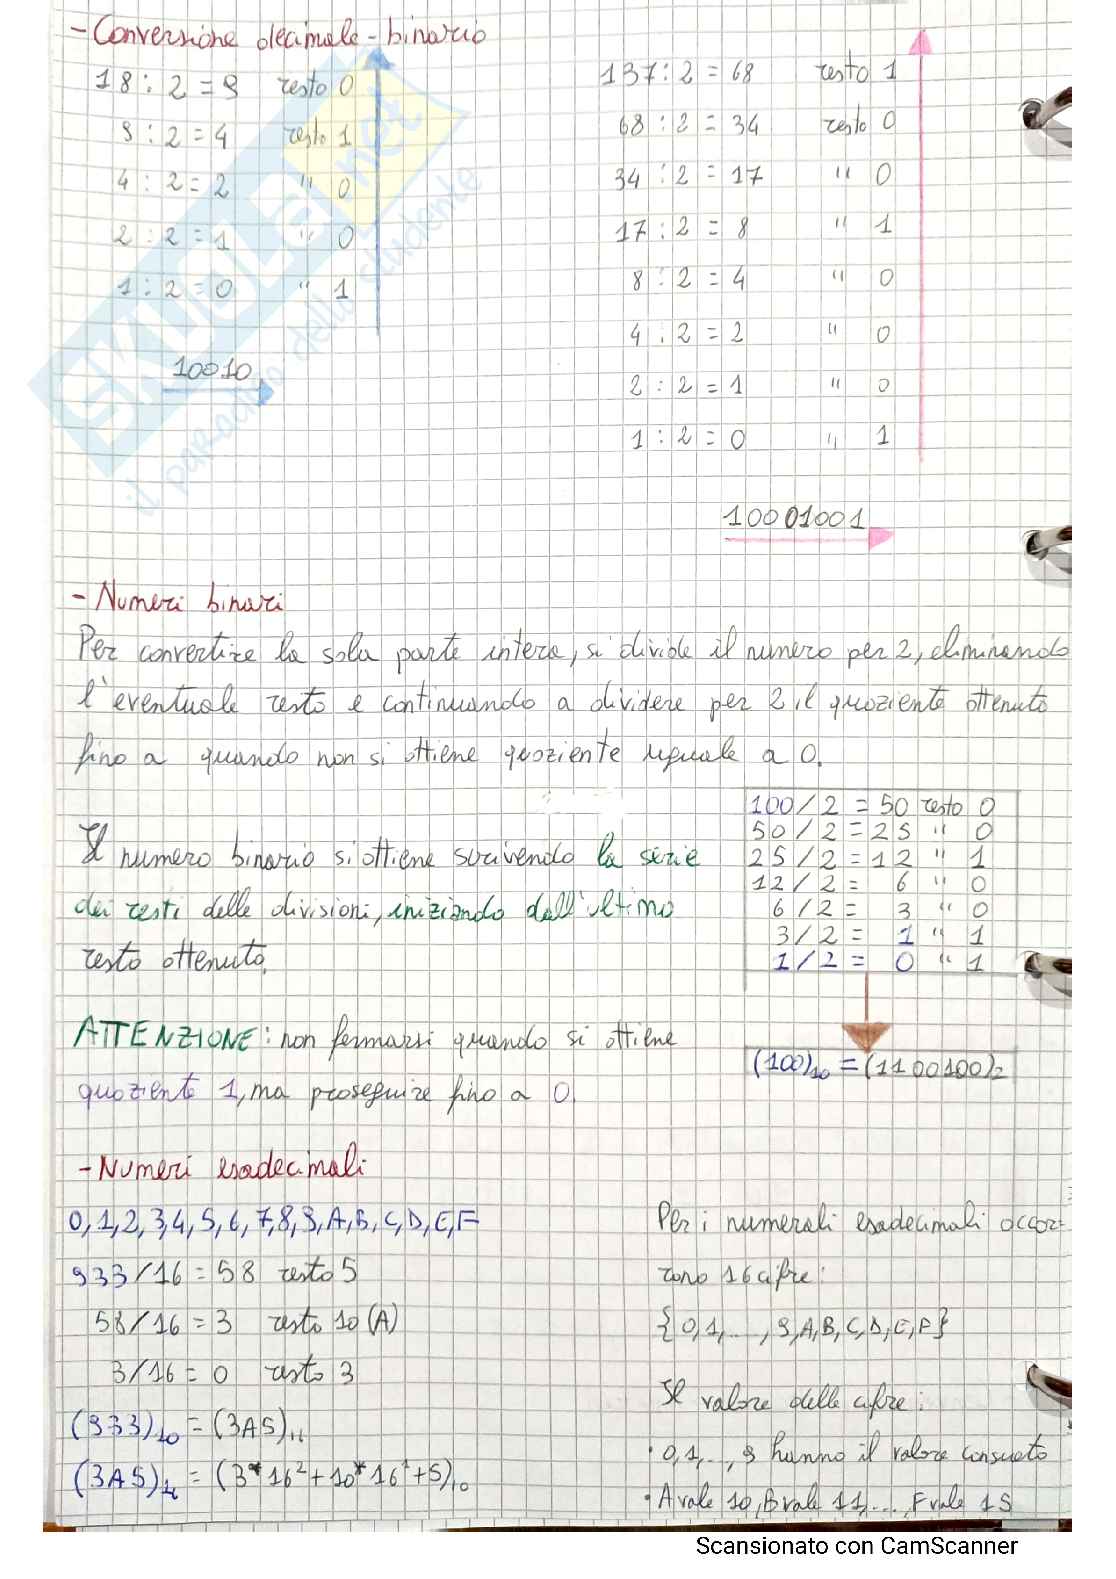 - Conversione decimale - binario
18 : 2 = 9 resto 0
9 : 2 = 4 resto 1
4 : 2 = 2 " 0
2 : 2 = 1 " 0
1 : 2 = 0 " 1
10010
137 : 2 = 68 resto 1
68 : 2 = 34 resto 0
34 : 2 = 17 " 0
17 : 2 = 8 " 1
8 : 2 = 4 " 0
4 : 2 = 2 " 0
2 : 2 = 1 " 0
1 : 2 = 0 " 1
10001001
SKUOLA.net
il paradiso dello studente
- Numeri binari
Per convertire la sola parte intera, si divide il numero per 2, eliminando
l'eventuale resto e continuando a dividere per 2 il quoziente ottenuto
fino a quando non si ottiene quoziente uguale a 0.
Il numero binario si ottiene scrivendo la serie
dei resti delle divisioni, iniziando dall'ultimo
resto ottenuto.
100 / 2 = 50 resto 0
50 / 2 = 25 " 0
25 / 2 = 12 " 1
12 / 2 = 6 " 0
6 / 2 = 3 " 0
3 / 2 = 1 " 1
1 / 2 = 0 " 1
(100)₁₀ = (1100100)₂
ATTENZIONE: non fermarsi quando si ottiene
quoziente 1, ma proseguire fino a 0.
- Numeri esadecimali
0, 1, 2, 3, 4, 5, 6, 7, 8, 9, A, B, C, D, E, F
933 / 16 = 58 resto 5
58 / 16 = 3 resto 10 (A)
3 / 16 = 0 resto 3
(933)₁₀ = (3A5)₁₆
(3A5)₁₆ = (3*16² + 10*16¹ + 5)₁₀
Per i numerali esadecimali occor-
rono 16 cifre:
{0, 1, ..., 9, A, B, C, D, E, F}
Il valore delle cifre:
• 0, 1, ..., 9 hanno il valore consueto
• A vale 10, B vale 11, ... F vale 15
Scansionato con CamScanner